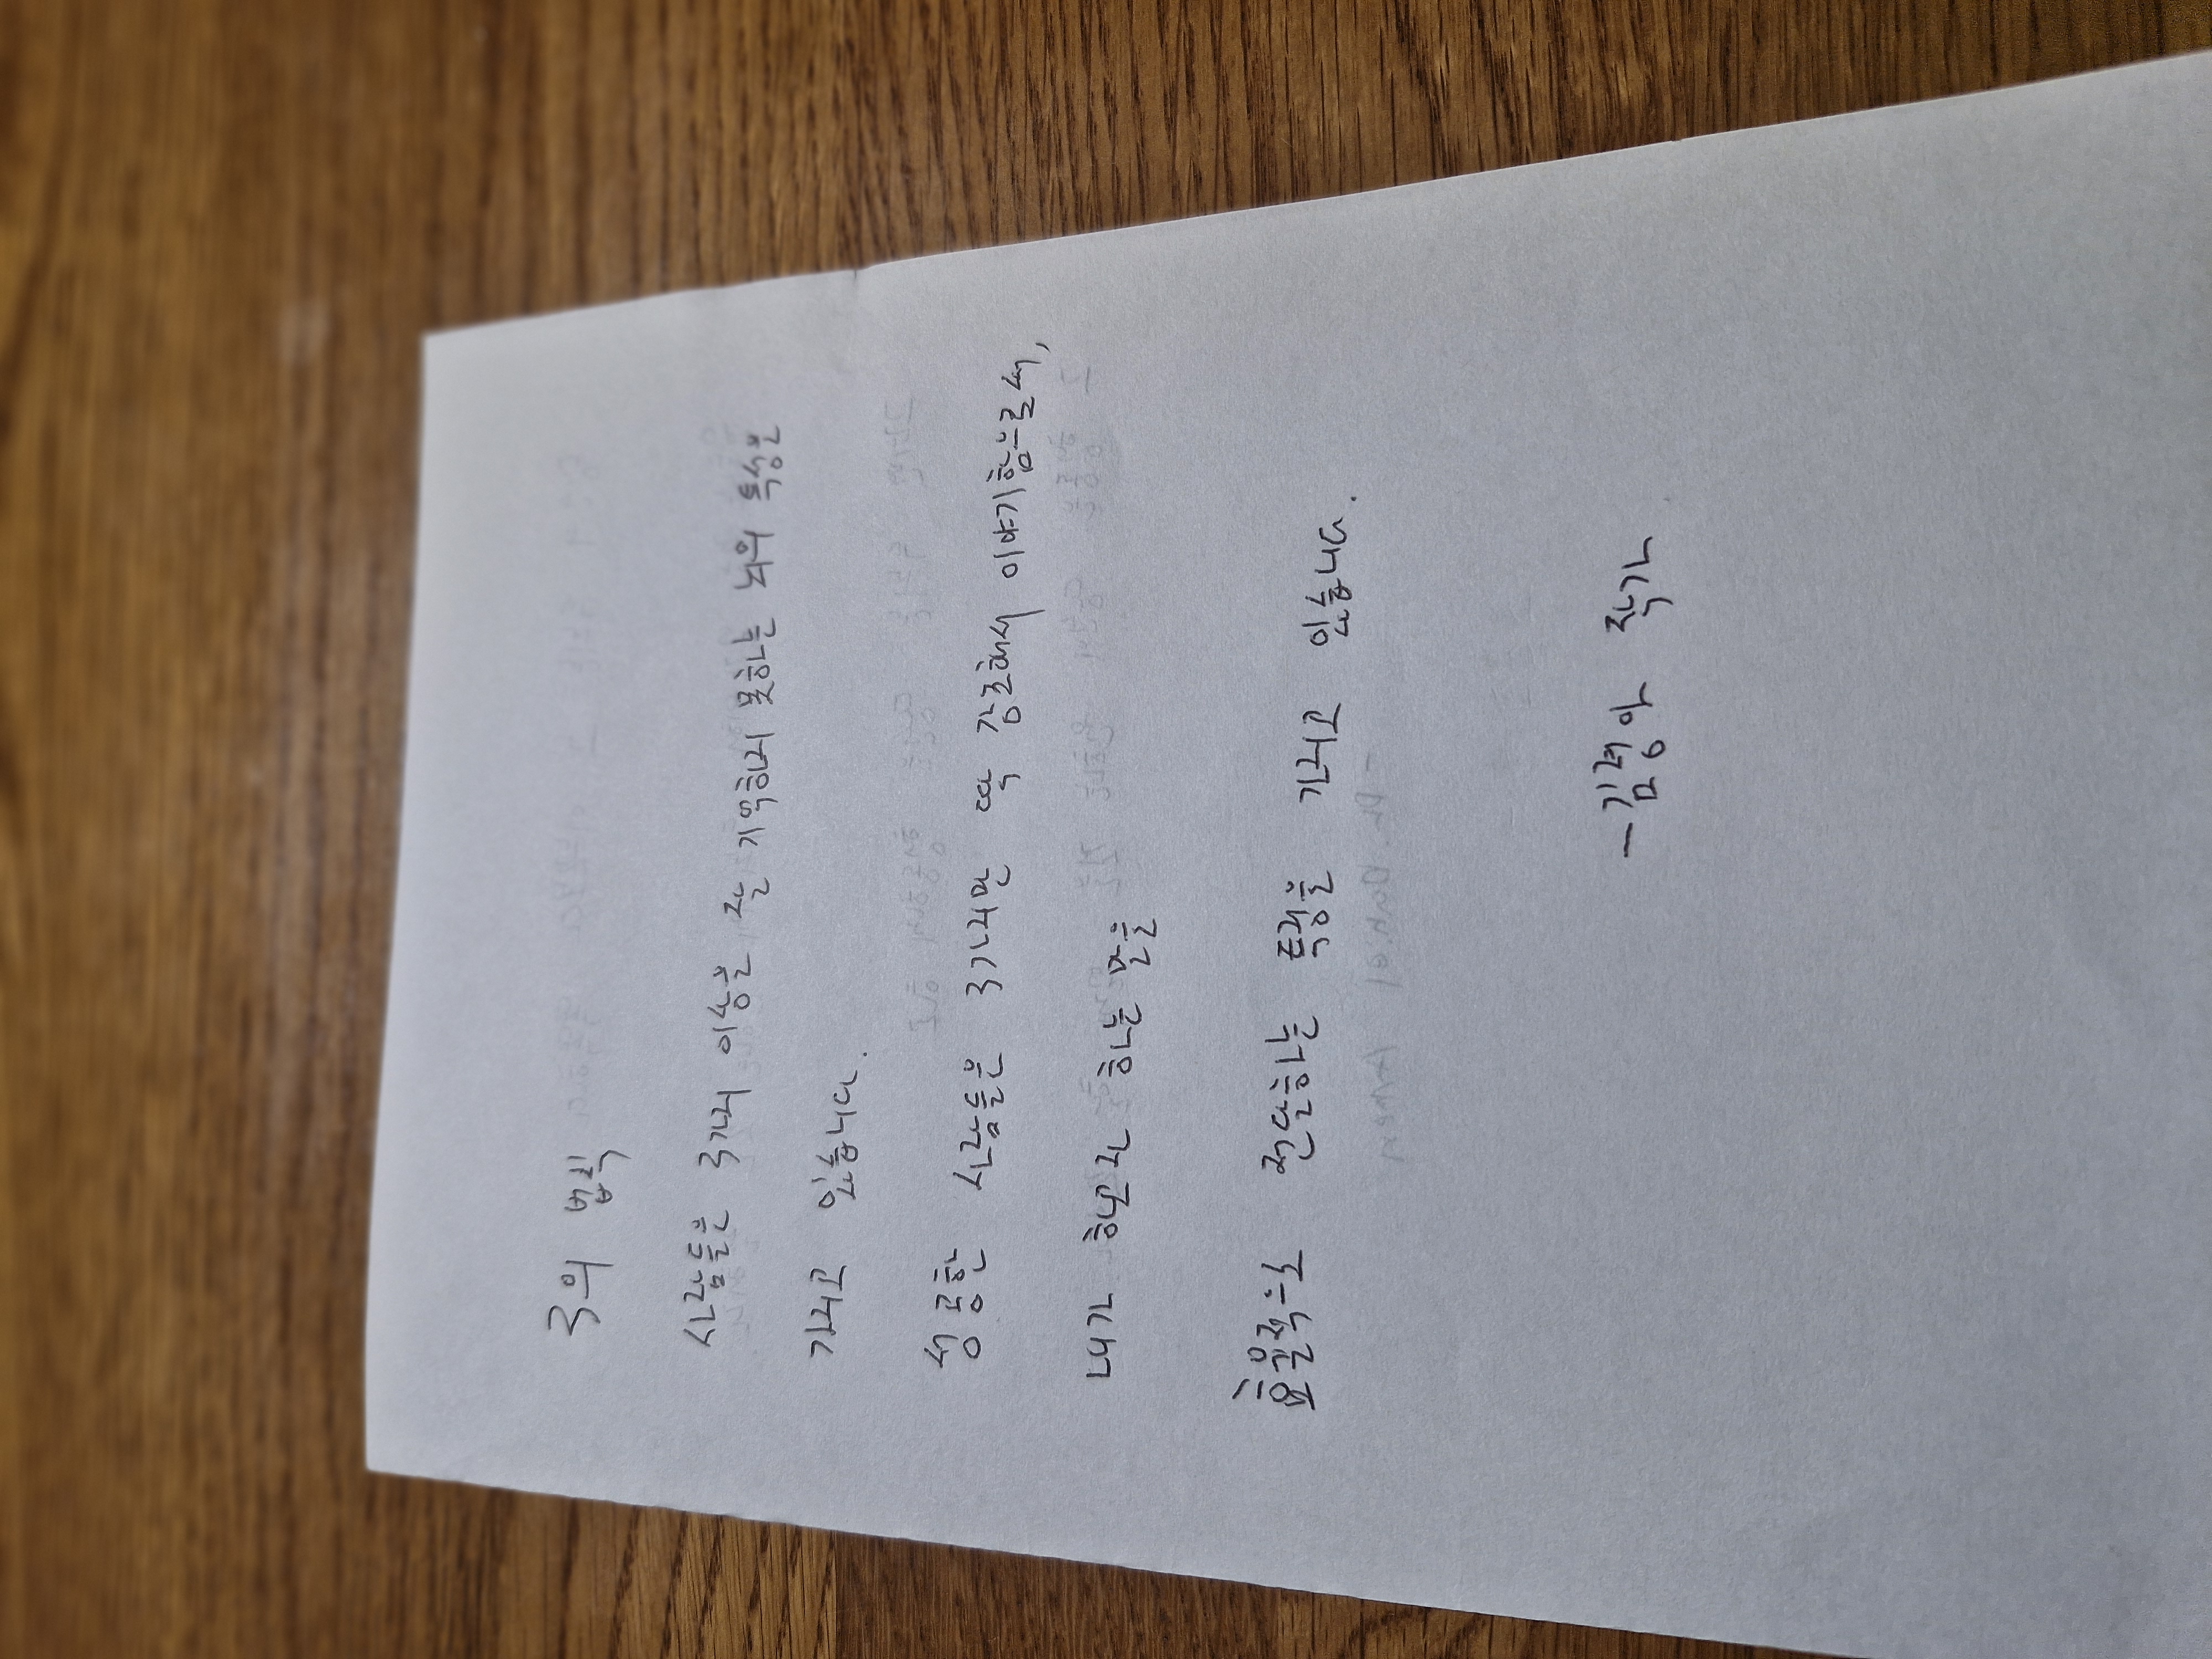 3의 법칙
사람들은 3가지 이상은 잘 기억하지 못하는 뇌의 특성을
가지고 있습니다.
성공한 사람들은 3가지만 딱 강조해서 이야기함으로써,
내가 하고자 하는 말을
효율적으로 전달하는 특징을 가지고 있습니다.
- 김정아 작가